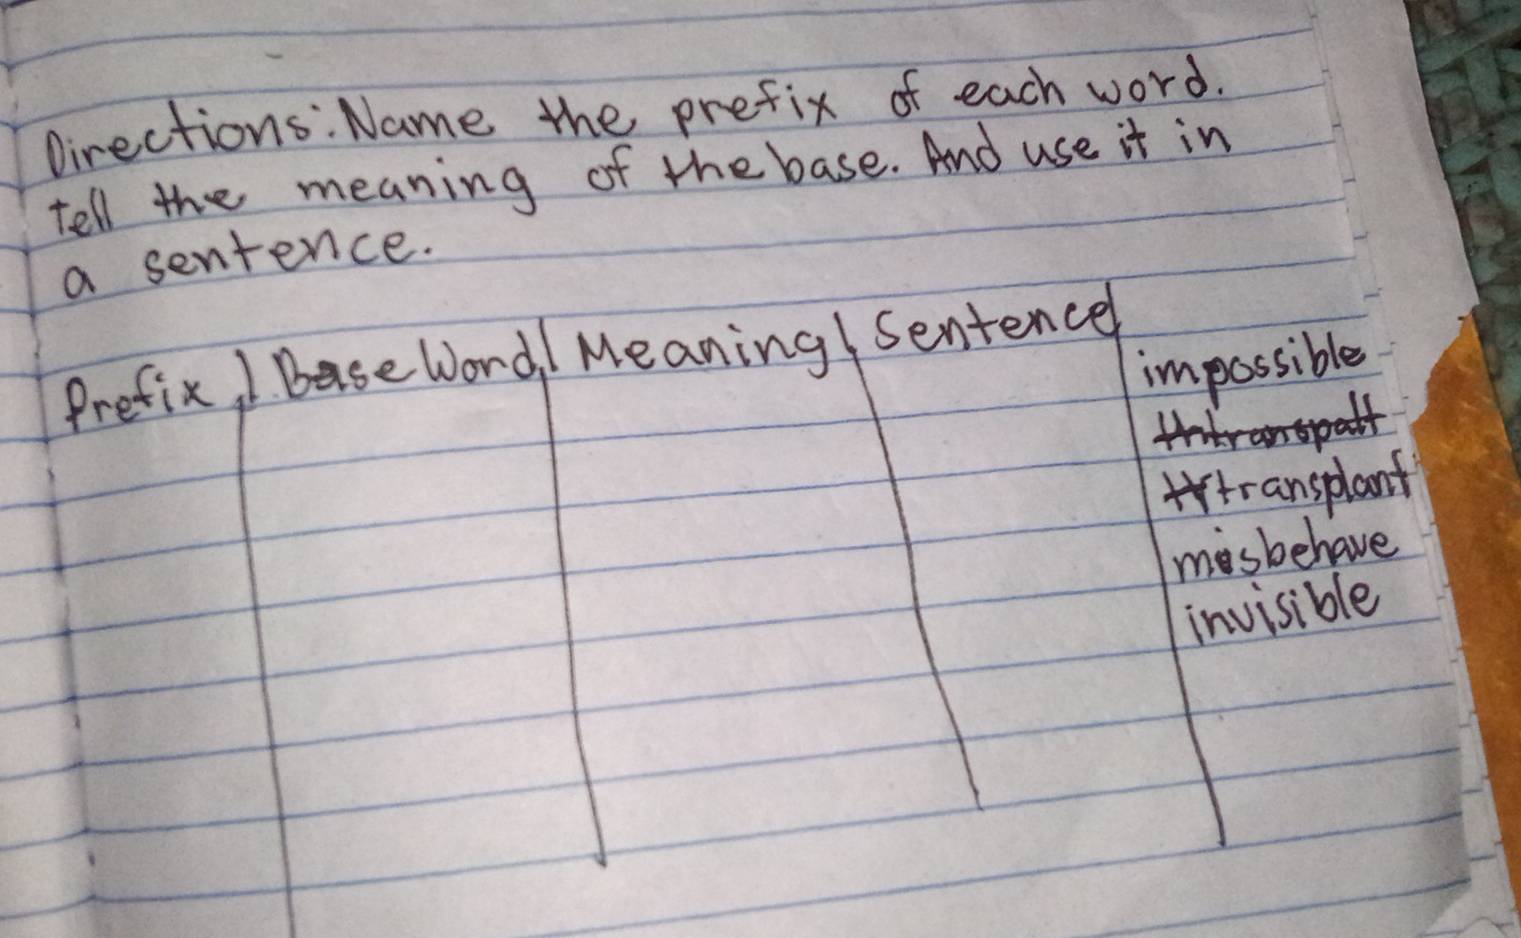 Directions: Name the prefix of each word.
tell the meaning of the base. And use it in
a sentence.
Prefix | Base Word | Meaning | Sentence
impossible
transplant
misbehave
invisible